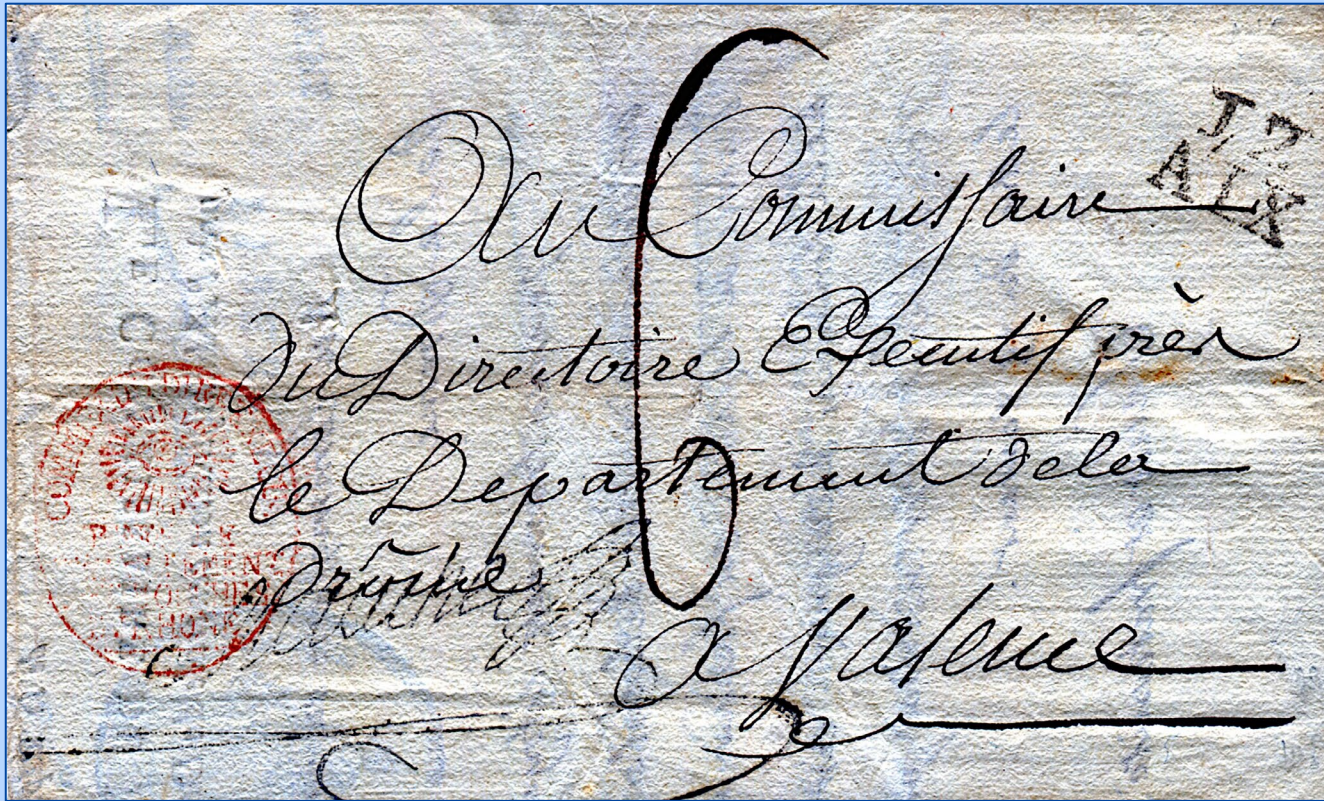 12
AIX
Au Commissaire
du Directoire Executif près
le Departement dela
drôme
a Valence
6